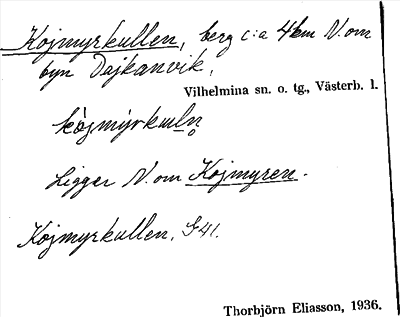 Kojmyrkullen, berg c:a 4km N.om
byn Dajkanvik,
Vilhelmina sn. o. tg., Västerb. l.
kòjmýrkuln̥
Ligger N.om Kojmyren.
Kojmyrkullen, G41.
Thorbjörn Eliasson, 1936.